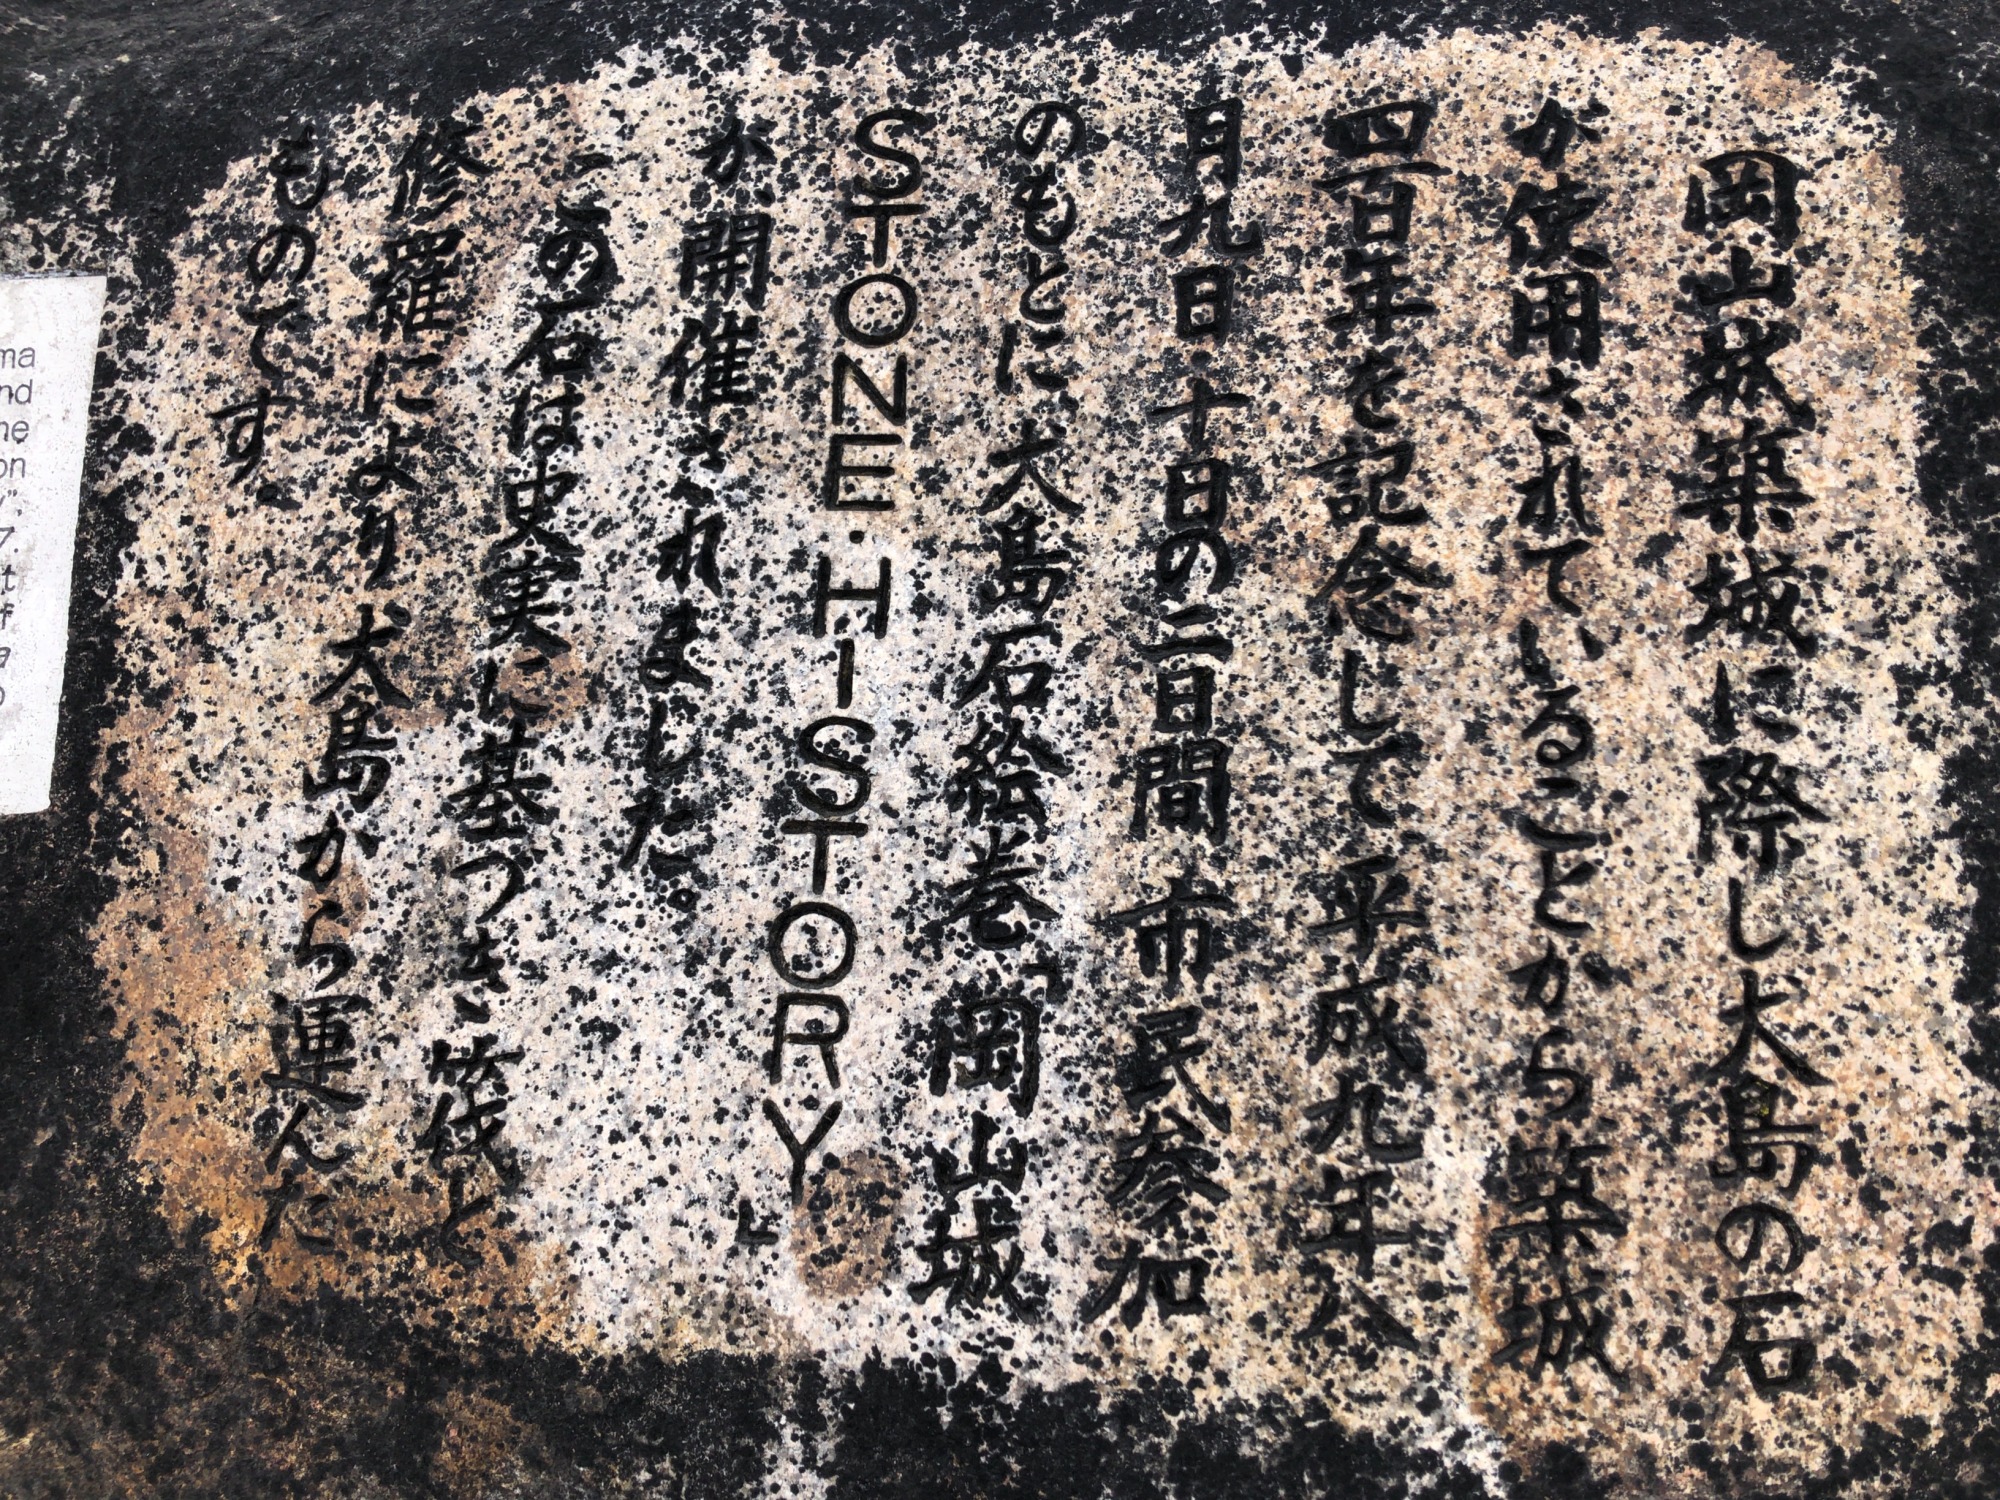 岡山城築城に際し犬島の石
が使用されていることから築城
四百年を記念して、平成九年八
月九日・十日の二日間 市民参加
のもとに、犬島石絵巻「岡山城
STONE・HISTORY」
が、開催されました。
この石は史実に基づき、筏と
修羅により犬島から運んだ
ものです。
ma
nd
ne
on
y".
7.
t
f
a
o